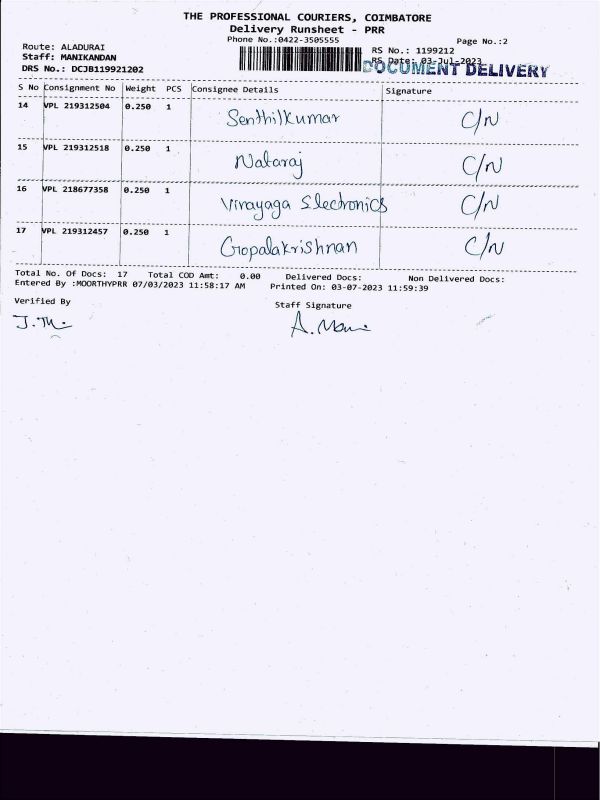 THE PROFESSIONAL COURIERS, COIMBATORE
Delivery Runsheet - PRR
Phone No.:0422-3505555
Page No.:2
Route: ALADURAI
Staff: MANIKANDAN
DRS No.: DCJB119921202
RS No.: 1199212
RS Date: 03-Jul-2023
DOCUMENT DELIVERY
S No Consignment No Weight PCS Consignee Details Signature
14 VPL 219312504 0.250 1 Senthilkumar C/N
15 VPL 219312518 0.250 1 Nataraj C/N
16 VPL 218677358 0.250 1 Vinayaga Slectronics C/N
17 VPL 219312457 0.250 1 Gopalakrishnan C/N
Total No. Of Docs: 17 Total COD Amt: 0.00 Delivered Docs: Non Delivered Docs:
Entered By :MOORTHYPRR 07/03/2023 11:58:17 AM Printed On: 03-07-2023 11:59:39
Verified By
Staff Signature
A. Mani